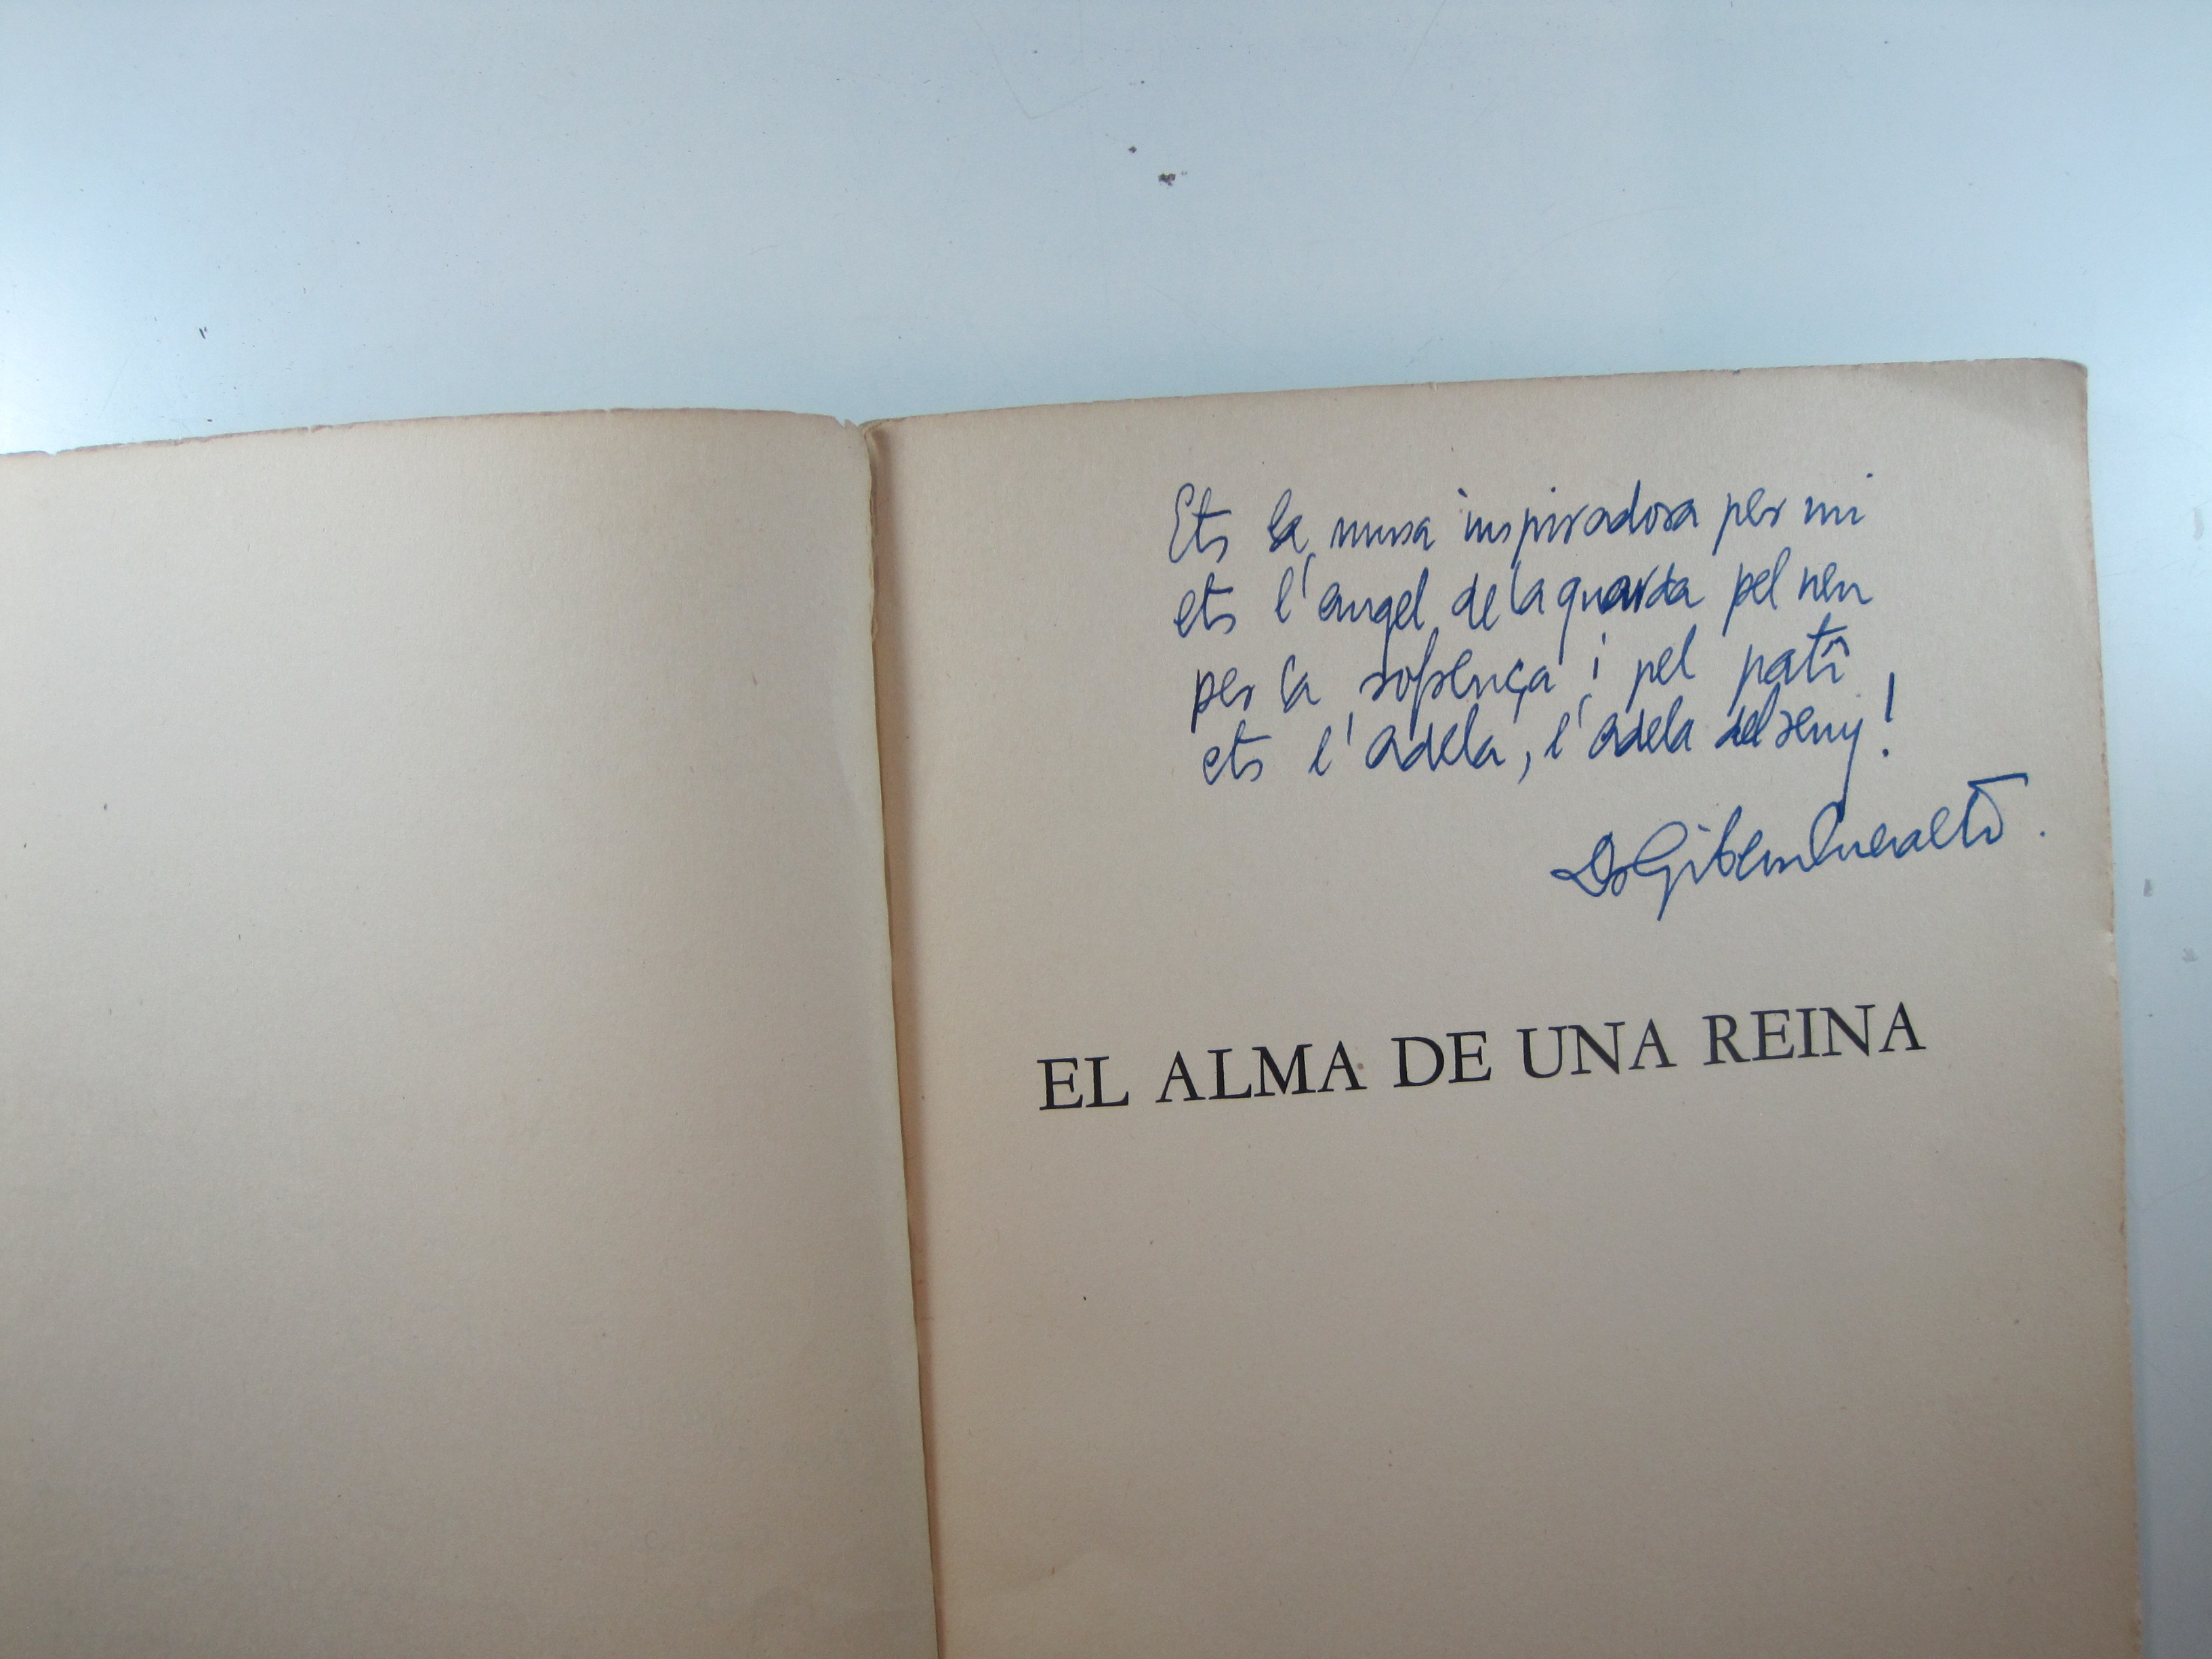 Ets la musa inspiradora per mi
ets l'angel de la guarda pel nen
per la sofrença i pel patî
ets l'Adela, l'Adela del seny!
Dr Gibert Queraltó.
EL ALMA DE UNA REINA